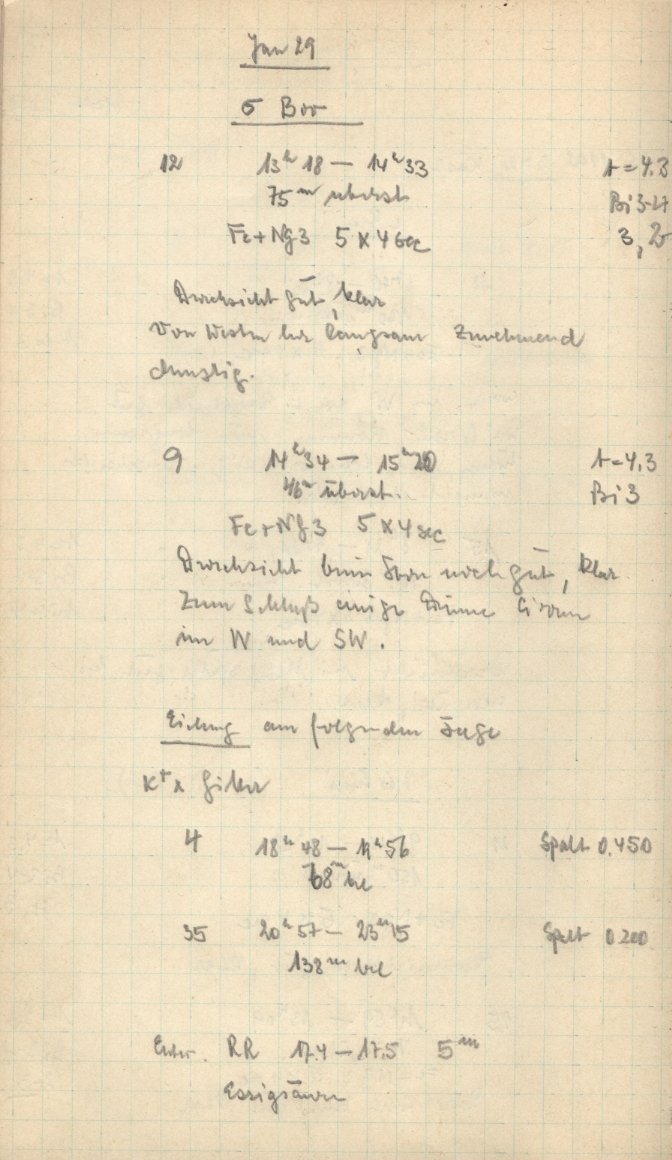 Jan 29
σ Boo
12 13ʰ 18 — 14ʰ 33 t = 4.3
75ᵐ überst. Bi 3-4
Fe + Ng 3 5 x 4 sec 3,
Durchsicht gut, klar
Von Westen her langsam zunehmend
dunstig.
9 14ʰ 34 — 15ʰ 20 t = 4,3
46ᵐ überst. Bi 3
Fe + Ng 3 5 x 4 sec
Durchsicht beim Stern noch gut, klar
Zum Schluß einige dünne Cirren
im W und SW.
Eichung am folgenden Tage
Gitter
4 18ʰ 48 — 19ʰ 56 Spalt 0.450
68ᵐ bel
35 20ʰ 57 — 23ʰ 15 Spalt 0.200
138ᵐ bel
Entw. RR 17.4 — 17.5 5ᵐ
Essigsäure